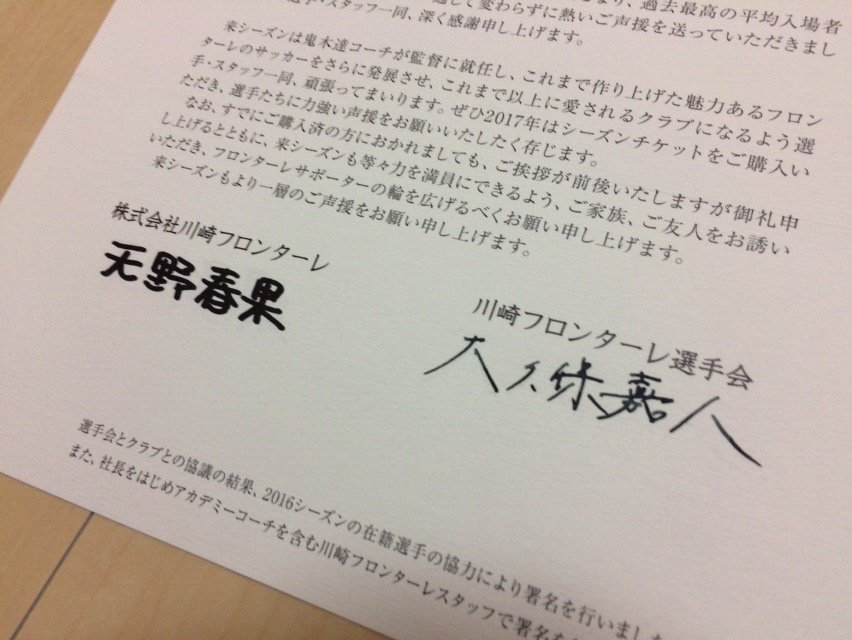 過去最高の平均入場者
して変わらずに熱いご声援を送っていただきまし
手・スタッフ一同、深く感謝申し上げます。
来シーズンは鬼木達コーチが監督に就任し、これまで作り上げた魅力あるフロン
ターレのサッカーをさらに発展させ、これまで以上に愛されるクラブになるよう選
手・スタッフ一同、頑張ってまいります。ぜひ2017年はシーズンチケットをご購入い
ただき、選手たちに力強い声援をお願いいたしたく存じます。
なお、すでにご購入済の方におかれましても、ご挨拶が前後いたしますが御礼申
し上げるとともに、来シーズンも等々力を満員にできるよう、ご家族、ご友人をお誘い
いただき、フロンターレサポーターの輪を広げるべくお願い申し上げます。
来シーズンもより一層のご声援をお願い申し上げます。
株式会社川崎フロンターレ
天野春果
川崎フロンターレ選手会
大久保嘉人
選手会とクラブとの協議の結果、2016シーズンの在籍選手の協力により署名を行いました
また、社長をはじめアカデミーコーチを含む川崎フロンターレスタッフで署名を